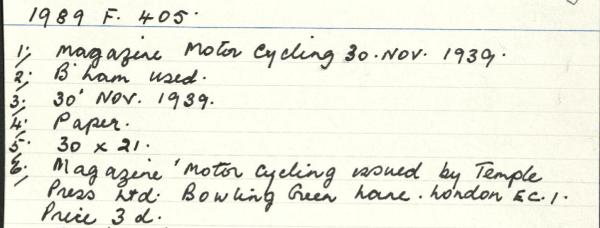 1989 F. 405.
1; Magazine Motor Cycling 30. NOV. 1939.
2; B'ham used.
3; 30' NOV. 1939.
4; Paper.
5; 30 x 21.
6; Magazine 'Motor Cycling issued by Temple
Press Ltd. Bowling Green Lane. London EC.1.
Price 3d.